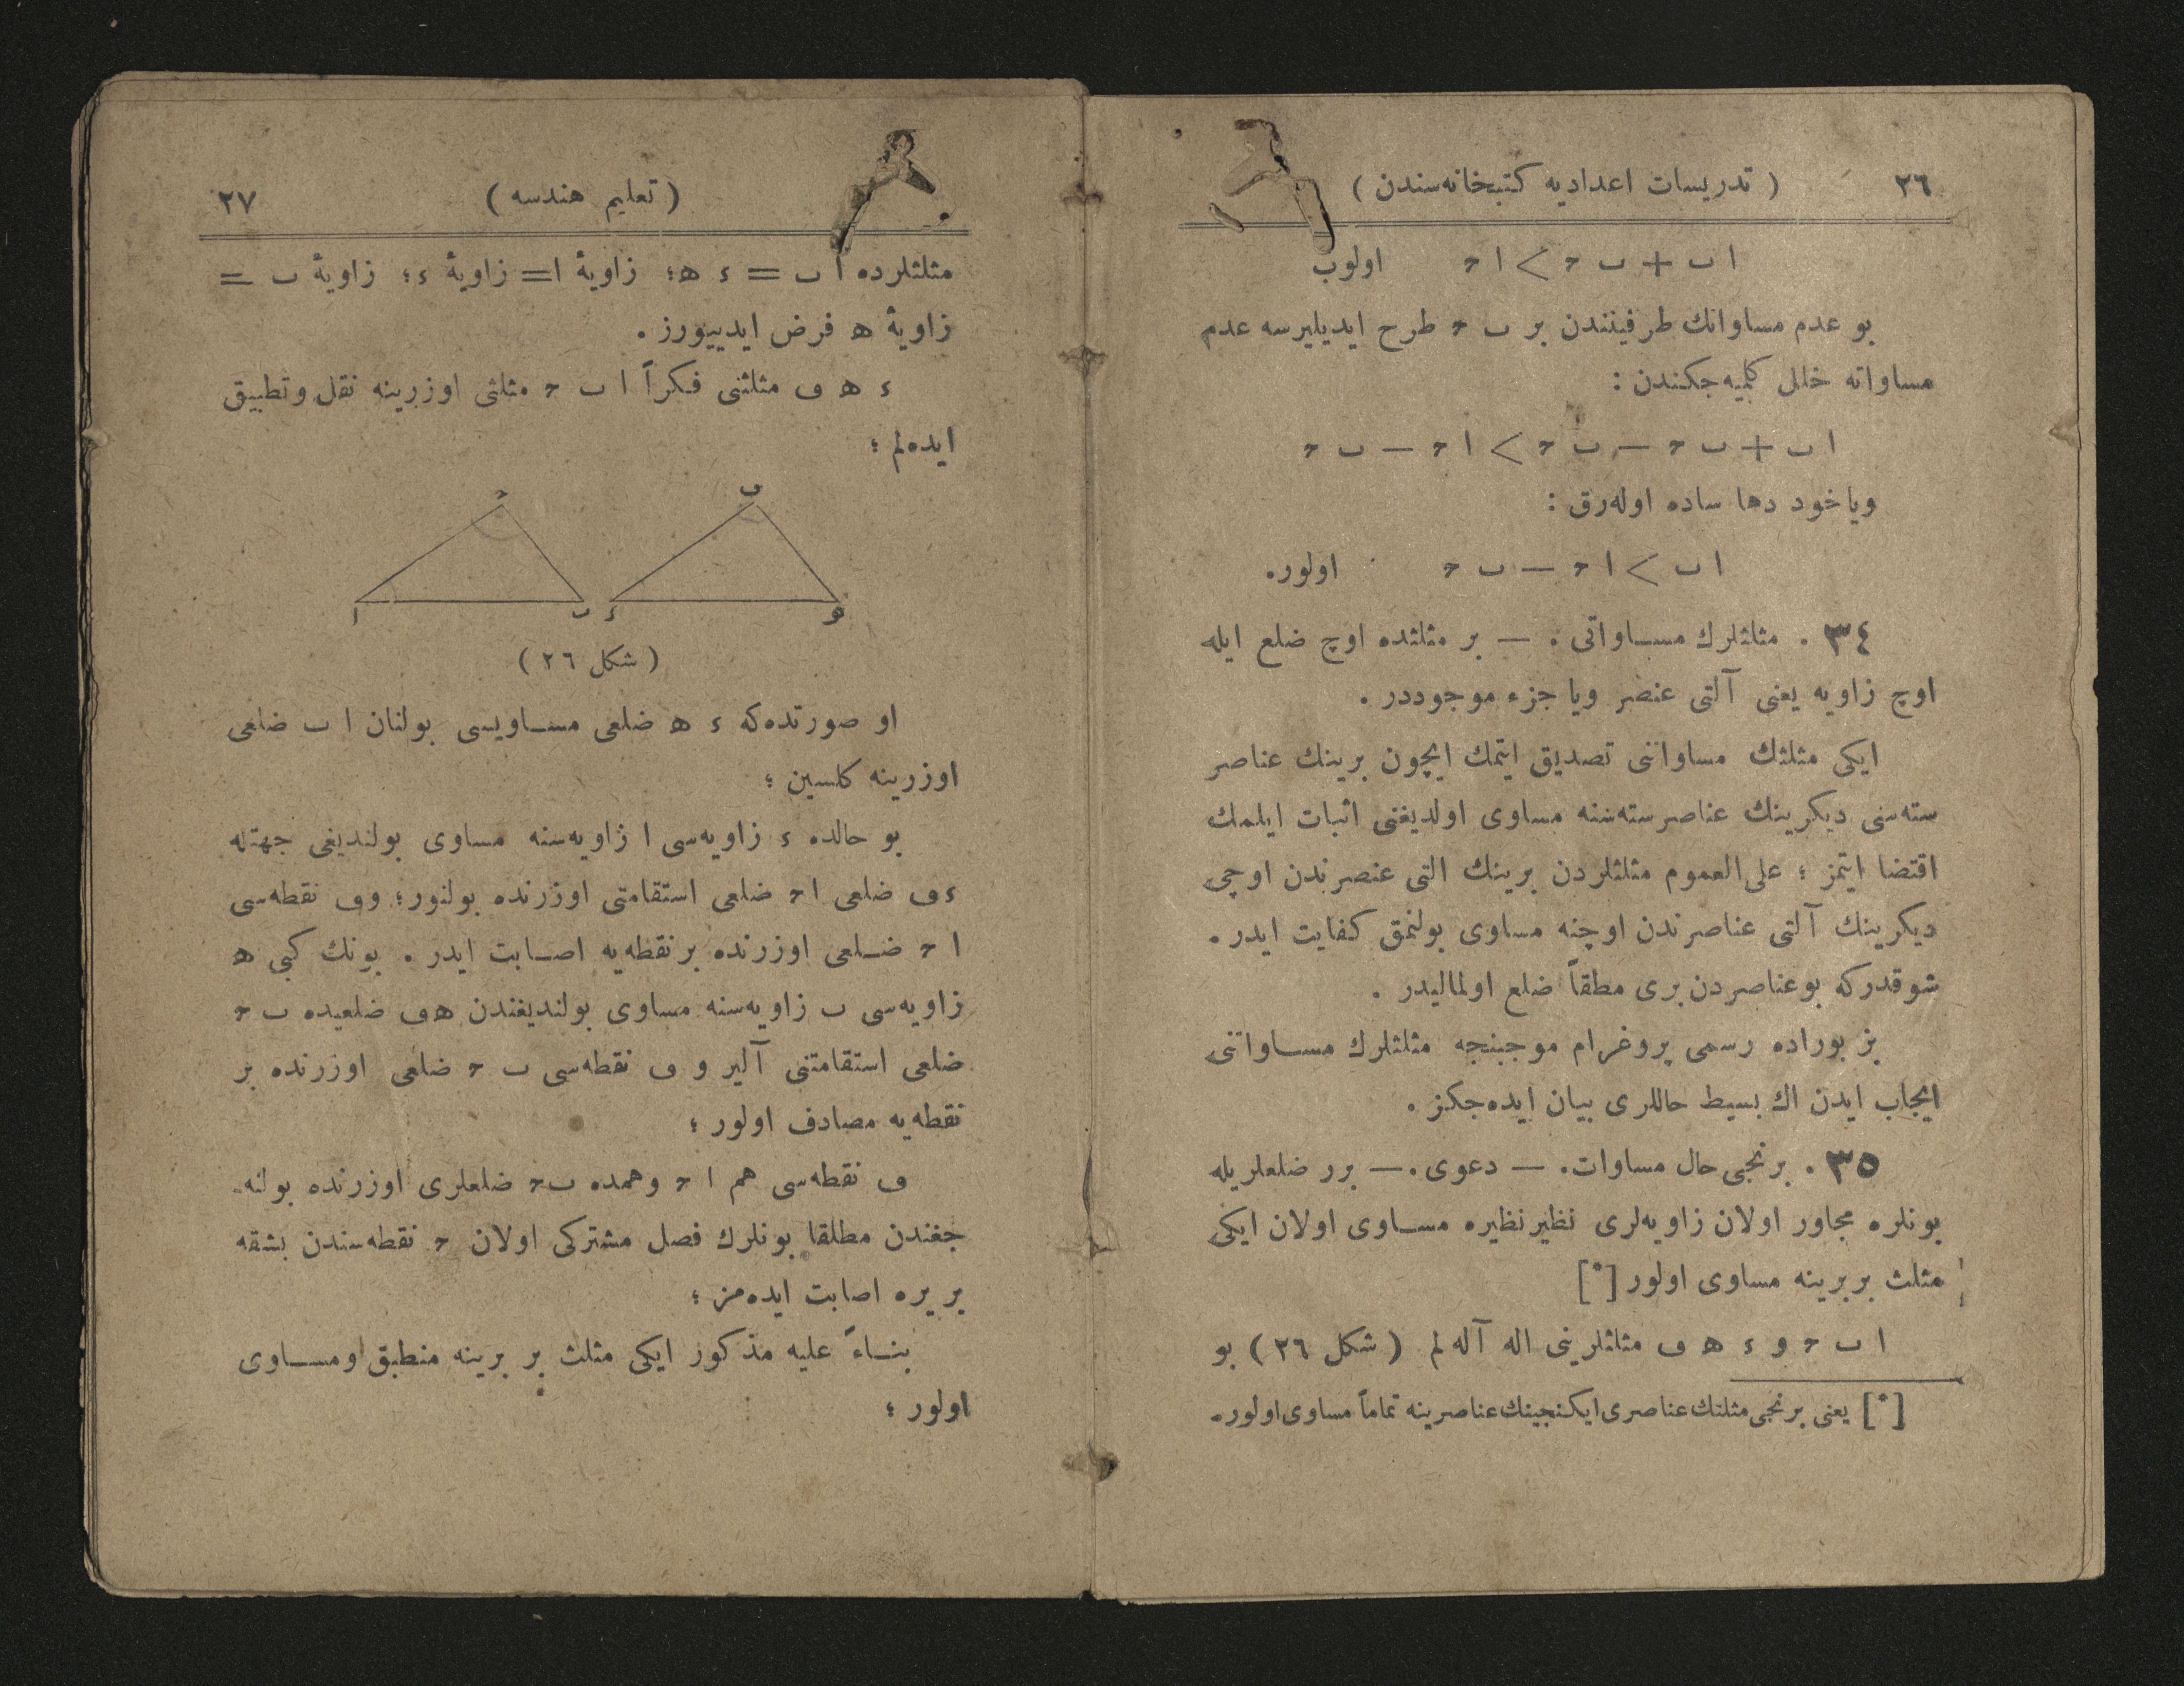 ٢٦
( تدريسات اعداديه كتبخانه‌سندن )
ا ب + ب ح > ا ح اولوب
بو عدم مساواتك طرفيتندن بر ب ح طرح ايديليرسه عدم
مساواته خلل كلميه‌جكندن :
ا ب + ب ح — ب ح > ا ح — ب ح
وياخود دها ساده اوله‌رق :
ا ب > ا ح — ب ح اولور.
٣٤ . مثلثلرك مساواتى . — بر مثلثده اوچ ضلع ايله
اوچ زاويه يعنى آلتى عنصر ويا جزء موجوددر .
ايكى مثلثك مساواتنى تصديق ايتمك ايچون برينك عناصر
سته‌سنى ديكرينك عناصر سته‌سنه مساوى اولديغنى اثبات ايلمك
اقتضا ايتمز ؛ على العموم مثلثلردن برينك التى عنصرندن اوچى
ديكرينك آلتى عناصرندن اوچنه مساوى بولنمق كفايت ايدر .
شو قدركه بو عناصردن برى مطلقاً ضلع اولماليدر .
بز بوراده رسمى پروغرام موجبنجه مثلثلرك مساواتنى
ايجاب ايدن اك بسيط حاللرى بيان ايده‌جكز .
٣٥ . برنجى حال مساوات. — دعوى. — برر ضلعلريله
بونلره مجاور اولان زاويه‌لرى نظير نظيره مساوى اولان ايكى
مثلث بربرينه مساوى اولور [*]
ا ب ح و ء ه ف مثلثلرينى اله آله‌لم ( شكل ٢٦ ) بو
[*] يعنى برنجى مثلثك عناصرى ايكنجينك عناصرينه تماماً مساوى اولور.
( تعليم هندسه )
٢٧
مثلثلرده ا ب = ء ه؛ زاويۀ ا = زاويۀ ء؛ زاويۀ ب =
زاويۀ ه فرض ايدييورز .
ء ه ف مثلثنى فكراً ا ب ح مثلثى اوزرينه نقل وتطبيق
ايده‌لم ؛
ح ف
ا ب ء ه
( شكل ٢٦ )
او صورتده‌كه ء ه ضلعى مساويسى بولنان ا ب ضلعى
اوزرينه كلسين ؛
بو حالده ء زاويه‌سى ا زاويه‌سنه مساوى بولنديغى جهتله
ء ف ضلعى ا ح ضلعى استقامتى اوزرنده بولنور؛ و ف نقطه‌سى
ا ح ضلعى اوزرنده بر نقطه‌يه اصابت ايدر . بونك كبى ه
زاويه‌سى ب زاويه‌سنه مساوى بولنديغندن ه ف ضلعيده ب ح
ضلعى استقامتنى آلير و ف نقطه‌سى ب ح ضلعى اوزرنده بر
نقطه‌يه مصادف اولور ؛
ف نقطه‌سى هم ا ح وهمده ب ح ضلعلرى اوزرنده بولنه‌-
جغندن مطلقا بونلرك فصل مشتركى اولان ح نقطه‌سندن بشقه
بر يره اصابت ايده‌مز ؛
بناءً عليه مذكور ايكى مثلث بر برينه منطبق ومساوى
اولور ؛